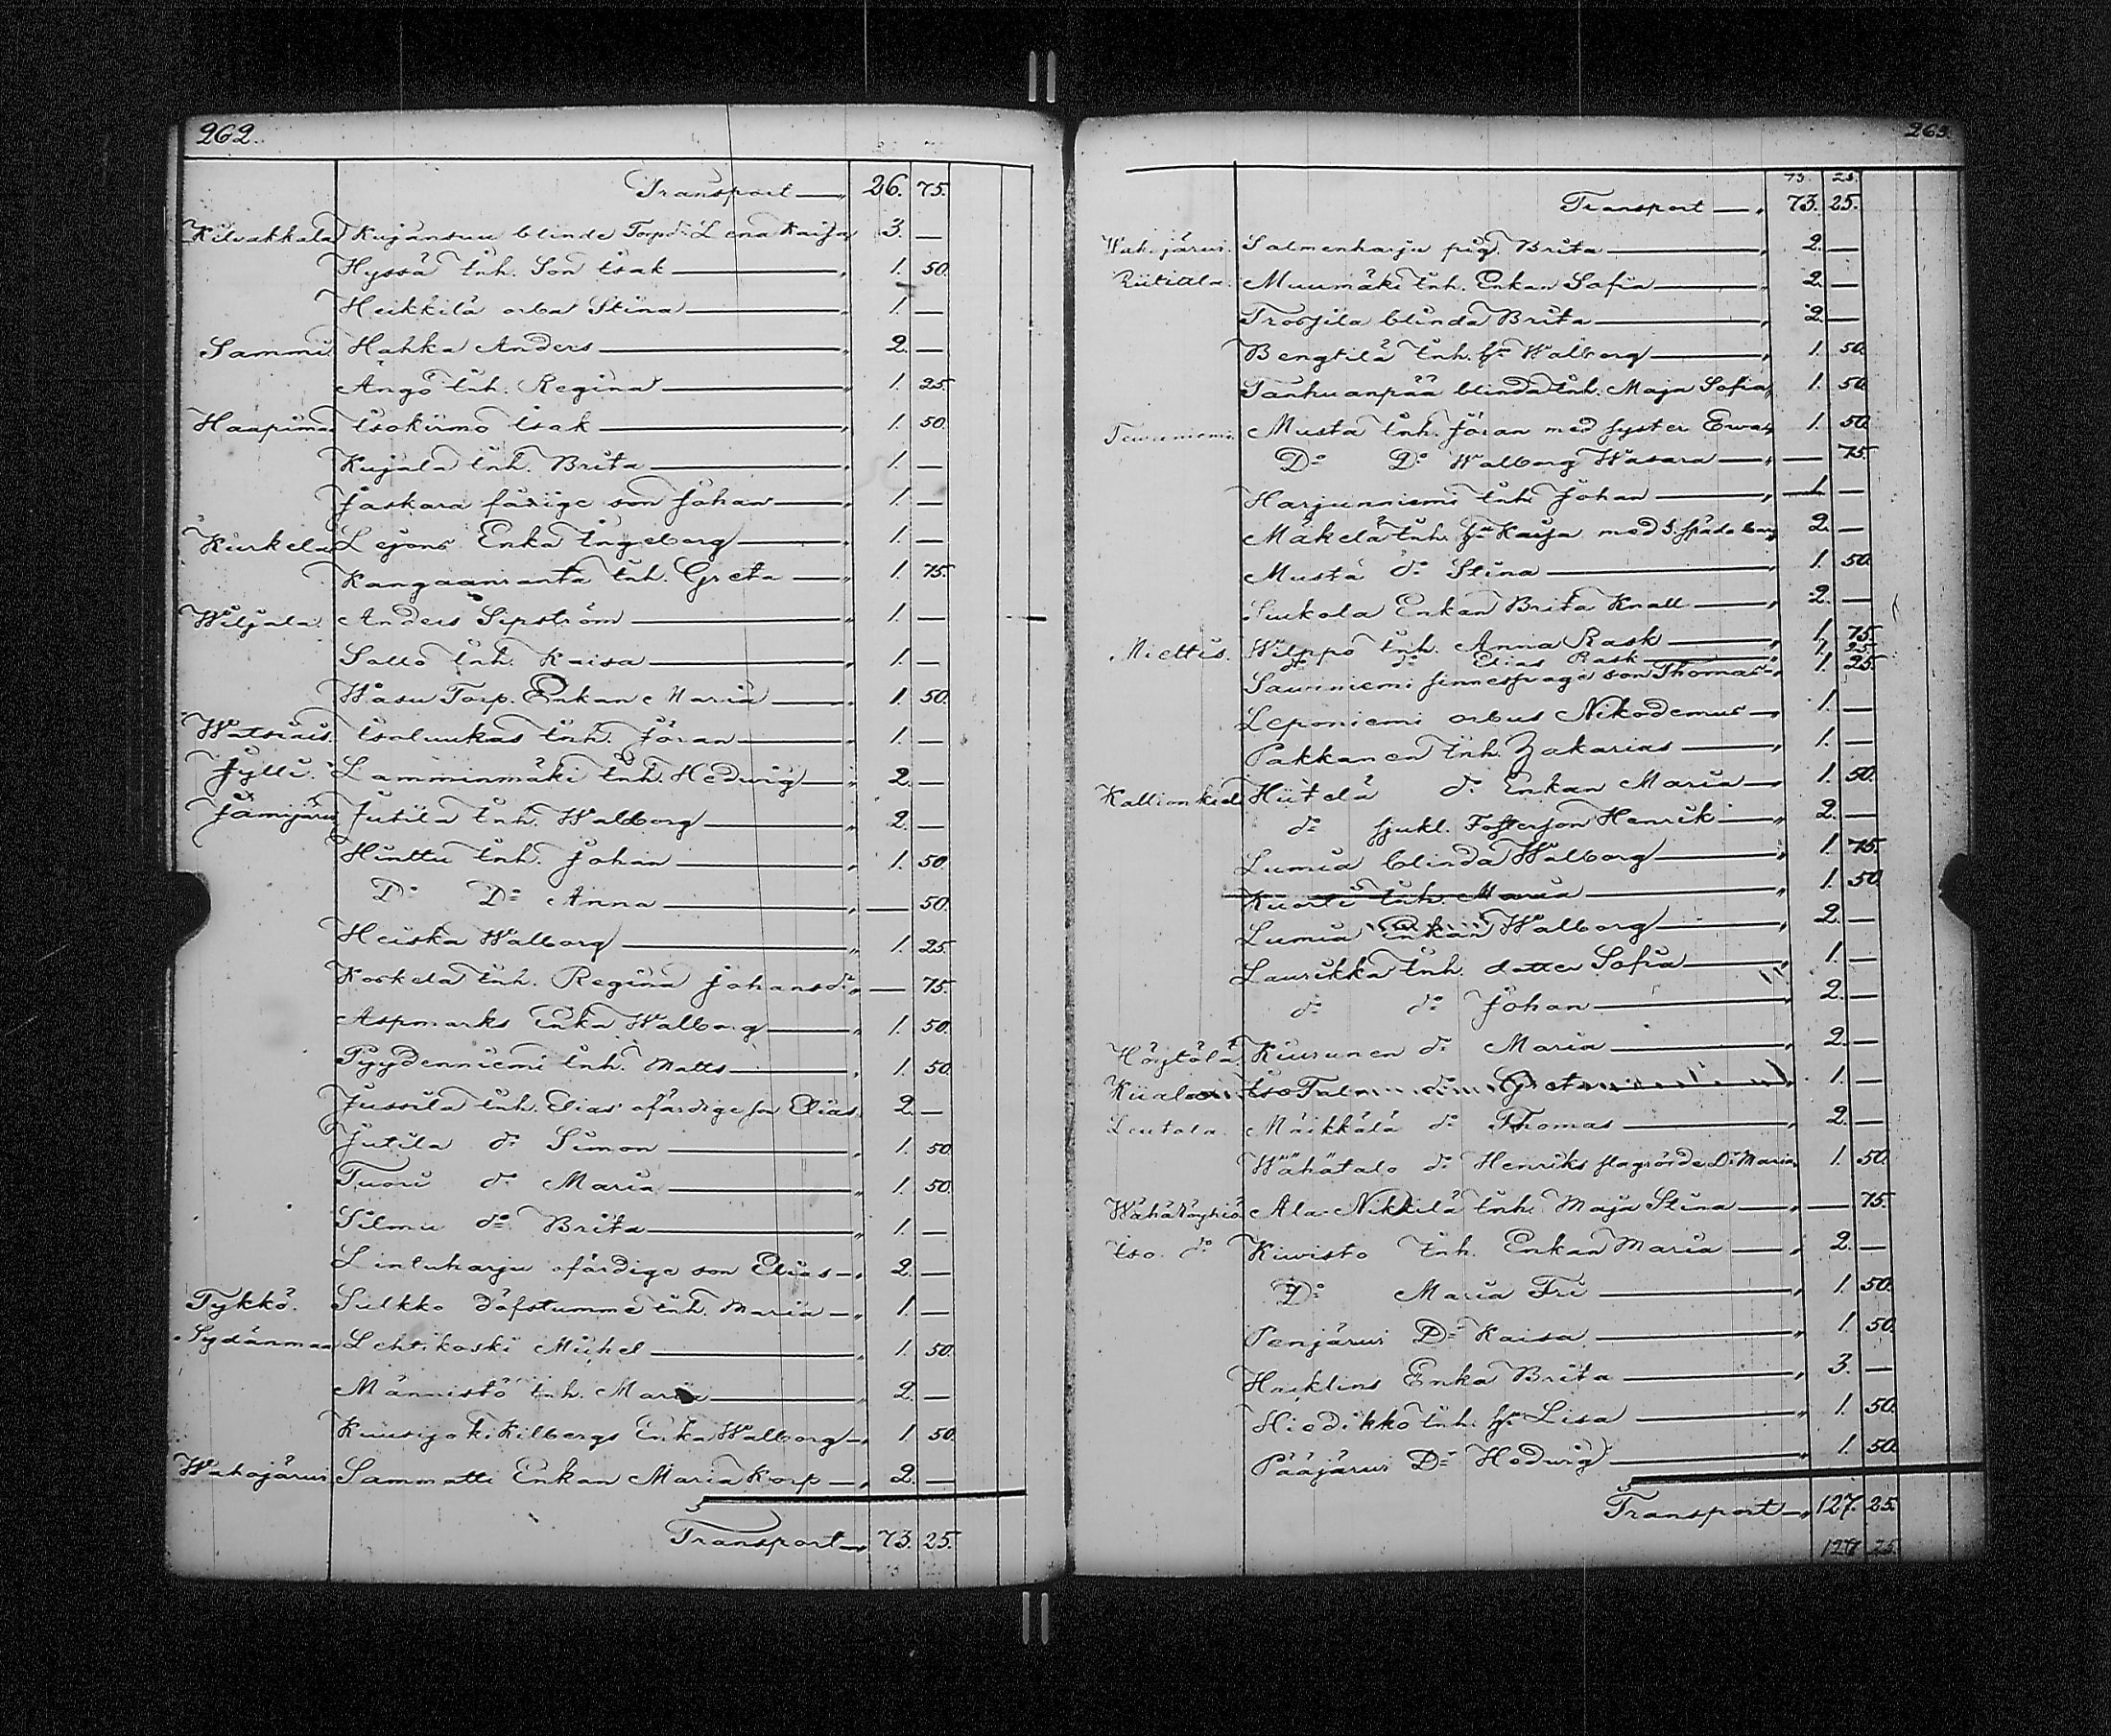 262.
Transport — 26. 75.
Kilvakkala Kujansuu blinde Torp dr Lena Kaisa 3. —
Hyssä Inh. Son Isak — 1. 50.
Heikkilä orba Stina — 1. —
Sammi Hahka Anders — 2. —
Ängö Inh. Regina — 1. 25
Haapima Isokiimo Isak — 1. 50
Kujala Inh. Brita — 1. —
Jaskara son Johan — 1. —
Kurkela Lejons Enka Ingeborg — 1. —
Kangaanranta Inh. Greta — 1. 75.
Wiljala. Anders Sipström — 1. —
Sallo Inh. Kaisa — 1. —
Wasu Torp. Enkan Maria — 1. 50.
Watsiais. Isoluukas Inh. Jöran — 1. —
Jylli. Lamminmäki Inh. Hedwig — 2. —
Jämijärvi Jutila Inh. Walborg — 2. —
Hinttu Inh. Johan — 1. 50.
Do Do Anna — 50.
Heiska Walborg — 1. 25.
Koskela Inh. Regina Johansdr — 75.
Aspmarks Enka Walborg — 1. 50.
Pyydenniemi Inh. Matts — 1. 50.
Jussila Inh. Elias ofärdige son Elias 2. —
Jutila do Simon — 1. 50.
Tuori do Maria — 1. 50.
Silmu do Brita — 1. —
Linluharju ofärdige son Elias — 2. —
Tykkö. Sulkko döfstumme Inh. Maria — 1. —
Sydänmaa Lehtikoski Michel — 1. 50.
Männistö Inh. Maria — 2. —
Kuusijoki Kilbergs Enka Walborg — 1 50.
Wahojärvi Sammatti Enkan Maria Korp — 2. —
Transport — 73. 25.
263.
73. 25.
Transport — 73. 25.
Wahojärvi. Salmenharju pig. Brita — 2. —
Riitiala. Muumäki Inh. Enkan Sofia — 2. —
Trossila blinda Brita — 2. —
Bengtilä Inh. hu Walborg — 1. 50
Tanhuanpää blinda Inh. Maja Sofia 1. 50
Teuraniemi. Musta Inh. Jöran med syster Ewa 1. 50
Do Do Walborg Wasara — 75.
Harjunniemi Inh. Johan — 1 —
Mäkelä Inh. hu Kaisa med 3. späda barn 2. —
Musta do Stina — 1. 50.
Sukola Enkan Brita Knall — 2. —
Miettis. Wilppo Inh. Anna Rask — 1. 75.
do do Elias Rask — 1. 25.
Sauniemi sinnessvage son Thomas — 1. 25
Leponiemi orbus Nikodemus — 1. —
Pakkanen Inh. Zakarias — 1. —
Kallionkieli Hiitelä do Enkan Maria — 1. 50.
do sjukl. Fosterson Henrik — 2. —
Lumia blinda Walborg — 1. 75.
Kuorti Inh. Maria — 1. 50
Lumia Enkan Walborg — 2. —
Laurikka Inh. dotter Sofia — 1. —
do do Johan — 2. —
Höytölä Kiurunen do Maria — 2. —
Kiiala Iso Talo Greta 1. —
Leutola. Mäikkälä do Thomas — 2. —
Wähätalo do Henriks Dr Maria 1. 50.
Wähäröyhiö Ala-Nikkilä Inh. Maja Stina — 75.
Iso. do Kiwisto Inh. Enkan Maria — 2. —
Do Maria Fri — 1. 50.
Penjärvi Do Kaisa — 1. 50.
Haiklins Enka Brita — 3. —
Hiedikko Inh. hu Lisa — 1. 50.
Pääjärvi Do Hedwig — 1. 50.
Transport — 127. 25.
127 25